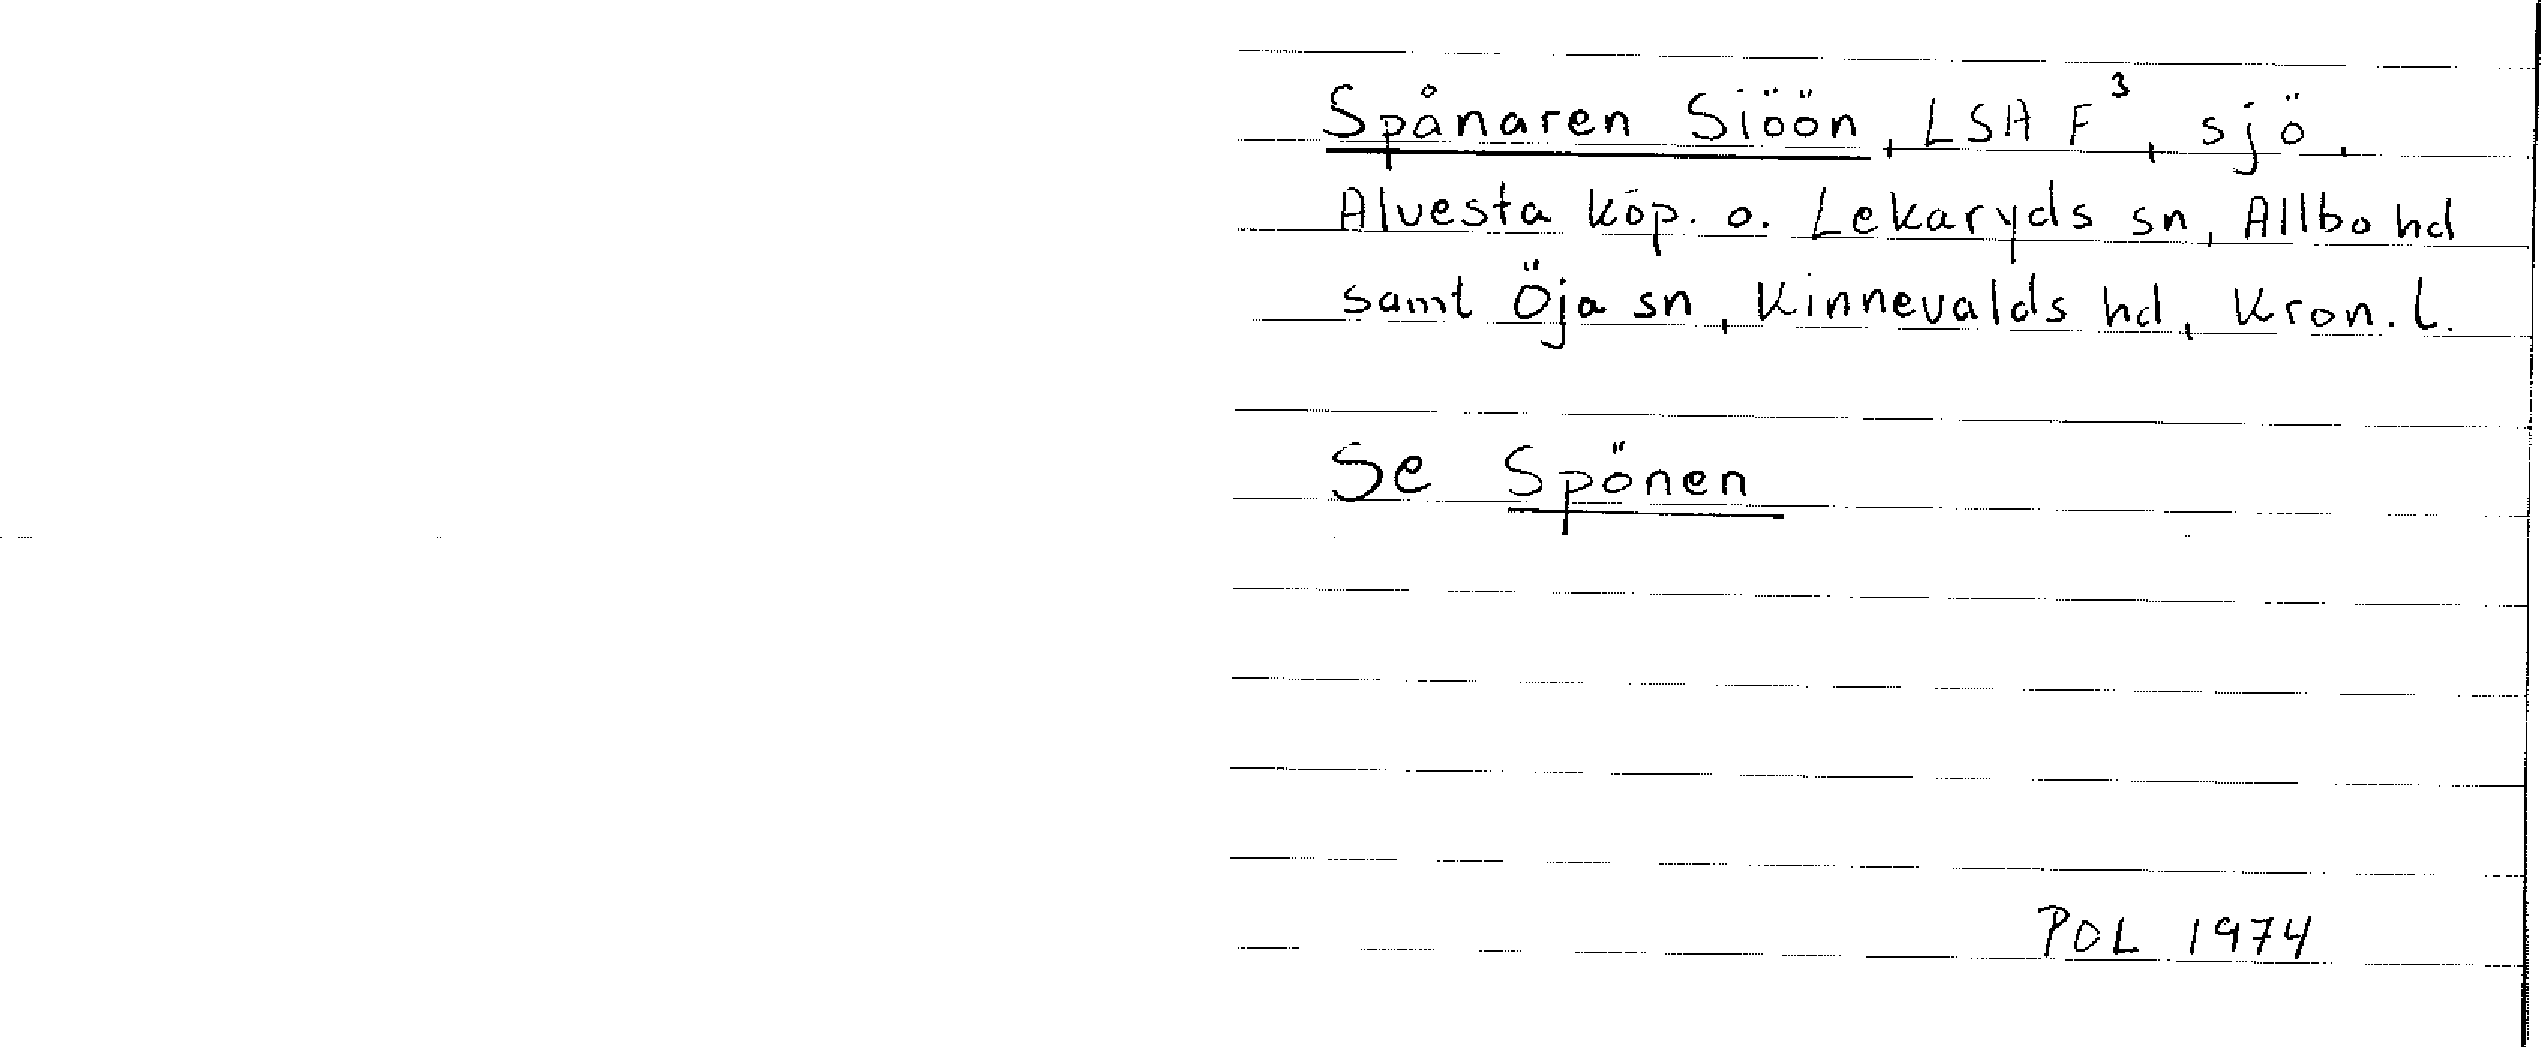 Spånaren Siöön, LSA F³, sjö.
Alvesta köp. o. Lekaryds sn, Allbo hd
samt Öja sn, Kinnevalds hd, Kron. l.
Se Spönen
POL 1974